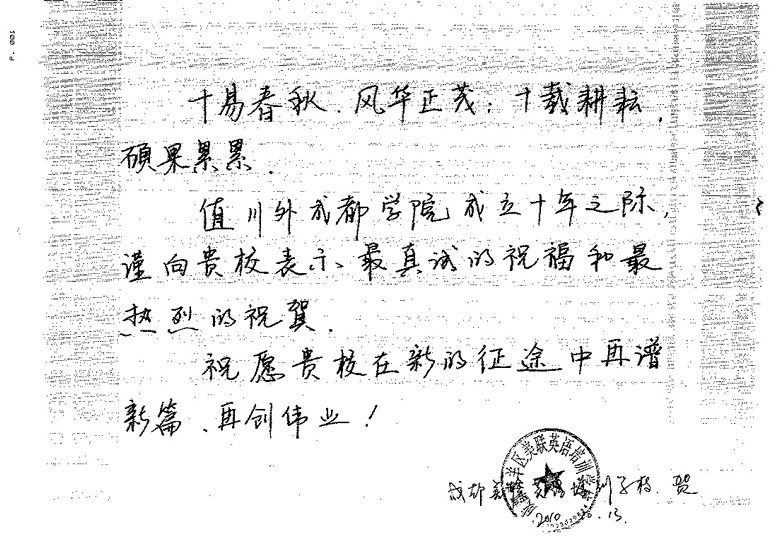 P. 001
十易春秋、风华正茂；十载耕耘，
硕果累累.
值川外成都学院成立十年之际，
谨向贵校表示最真诚的祝福和最
热烈的祝贺.
祝愿贵校在新的征途中再谱
新篇、再创伟业！
羊区美联英语培训学校
成都美联英语培训学校 贺
2010